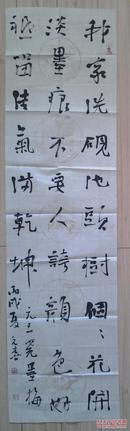 我家洗硯池頭樹個々花開
淡墨痕不要人誇顏色好
祇留清氣滿乾坤 元王冕墨梅
丙戌夏文